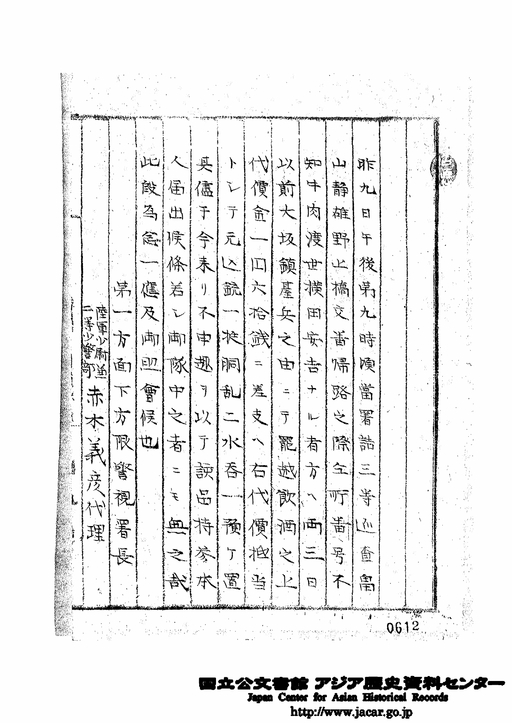 昨九日午後第九時頃當署詰三等巡査畠
山静雄野上橋交番帰路之際仝町番号不
知牛肉渡世横田安吉ナル者方ヘ両三日
以前大坂鎮臺兵之由ニテ罷越飲酒之上
代價金一円六拾銭ニ差支ヘ右代價抵当
トシテ元込銃一挺胴乱二水呑一預ケ置
其儘于今来リ不申趣ヲ以テ該品持参本
人届出候條若シ御隊中之者ニモ無之哉
此段為念一應及御照會候也
第一方面下方限警視署長
陸軍少尉兼
二等少警部
赤木義彦代理
0612
国立公文書館 アジア歴史資料センター
Japan Center for Asian Historical Records
http://www.jacar.go.jp